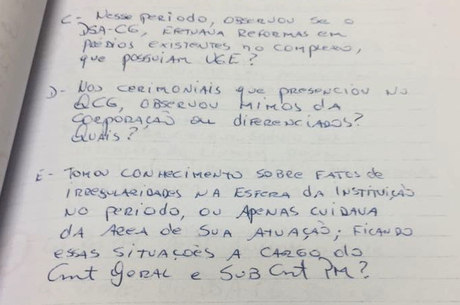 C- Nesse período, observou se o
DSA-CG, efetuava reformas em
prédios existentes no complexo,
que possuíam UGE?
D- Nos cerimoniais que presenciou no
QCG, observou mimos da
corporação ou diferenciados?
Quais?
E- Tomou conhecimento sobre fatos de
irregularidades na esfera da instituição
no período, ou apenas cuidava
da área de sua atuação; ficando
essas situações a cargo do
Cmt Geral e Sub Cmt PM?